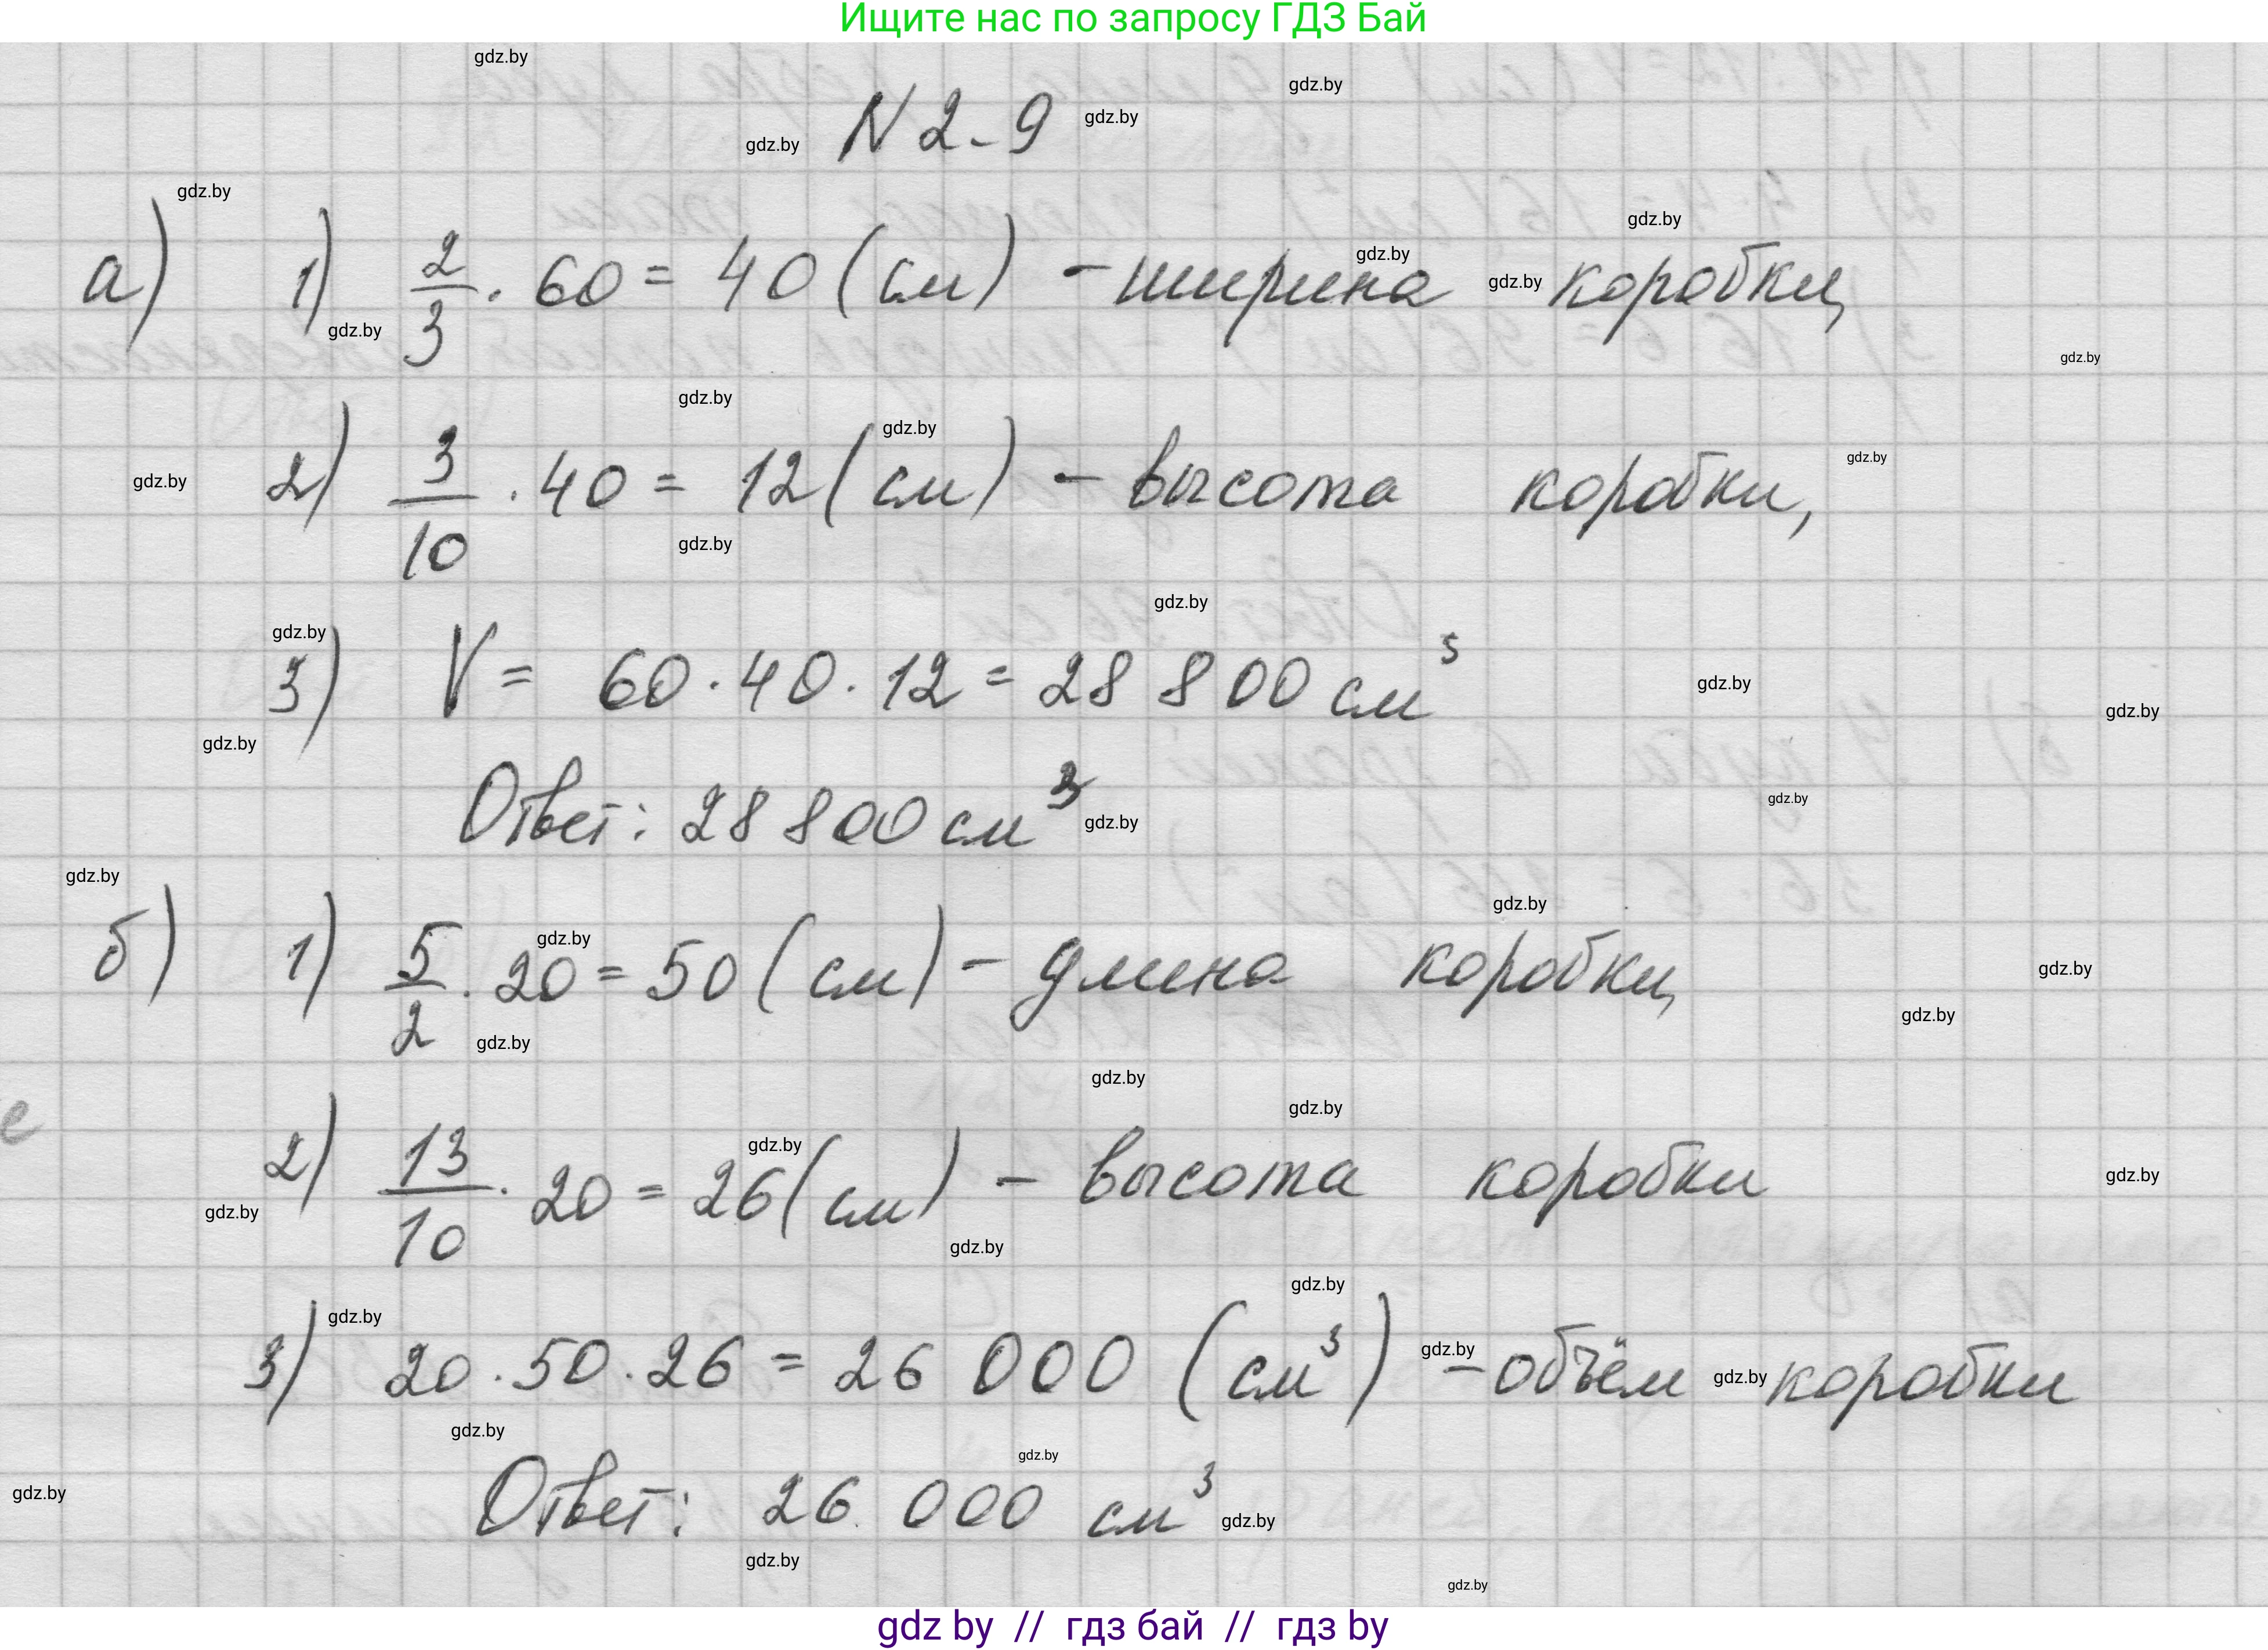 Ищите нас по запросу ГДЗ Бай
N 2-9
а) 1) 2/3 · 60 = 40 (см) - ширина коробки,
2) 3/10 · 40 = 12 (см) - высота коробки,
3) V = 60 · 40 · 12 = 28 800 см³
Ответ: 28 800 см³
б) 1) 5/2 · 20 = 50 (см) - длина коробки,
2) 13/10 · 20 = 26 (см) - высота коробки
3) 20 · 50 · 26 = 26 000 (см³) - объём коробки
Ответ: 26 000 см³
gdz by // гдз бай // гдз by